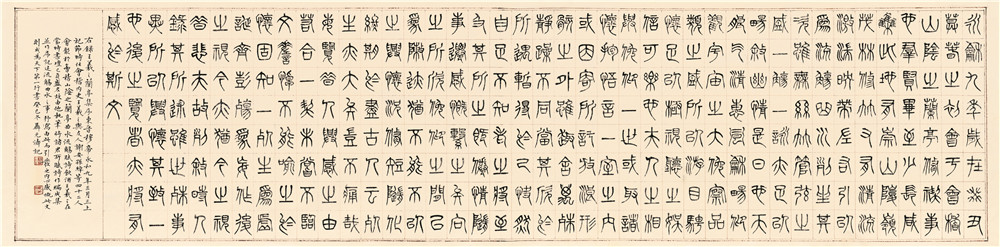 永和九年歲在癸丑
暮春之初會于會稽
山陰之蘭亭脩禊事
也群賢畢至少長咸
集此地有崇山峻領
茂林脩竹又有清流
激湍映帶左右引以
為流觴曲水列坐其
次雖無絲竹管弦之
盛一觴一詠亦足以
暢敘幽情是日也天
朗氣清惠風和暢仰
觀宇宙之大俯察品
類之盛所以遊目騁
懷足以極視聽之娛
信可樂也夫人之相
與俯仰一世或取諸
懷抱悟言一室之內
或因寄所託放浪形
骸之外雖趣舍萬殊
靜躁不同當其欣於
所遇暫得於己快然
自足不知老之將至
及其所之既惓情隨
事遷感慨係之矣向
之所欣俛仰之間已
為陳跡猶不能不以
之興懷況脩短隨化
終期於盡古人云死
生亦大矣豈不痛哉
每覽昔人興感之由
若合一契未嘗不臨
文嗟悼不能喻之於
懷固知一死生為虛
誕齊彭殤為妄作後
之視今亦猶今之視
昔悲夫故列敘時人
錄其所述雖世殊事
異所以興懷其致一
也後之覽者亦將有
感於斯文
右錄王羲之蘭亭集序東晉穆帝永和九年三月三上